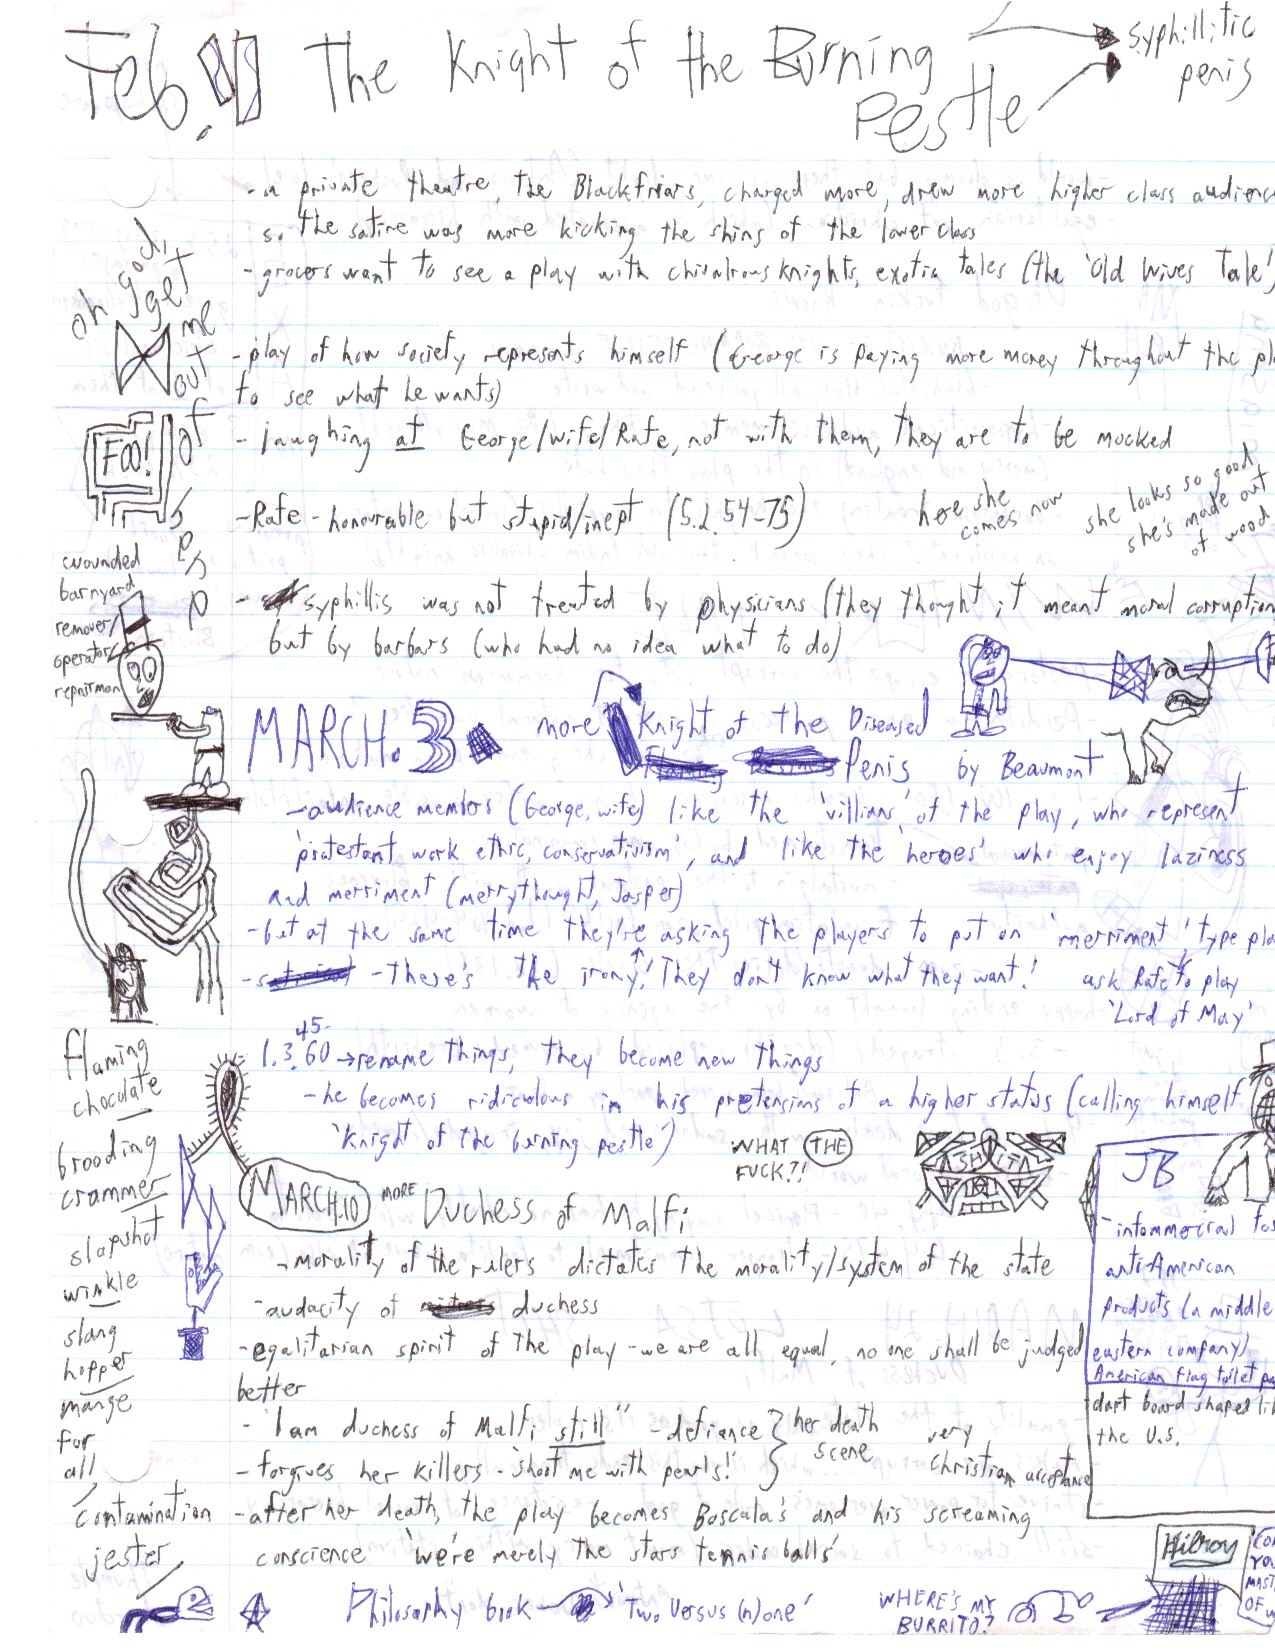 Feb. The Knight of the Burning Pestle
syphillitic
penis
- a private theatre, the Blackfriars, charged more, drew more higher class audienc
so the satire was more kicking the shins of the lower class
- grocers want to see a play with chivalrous knights, exotic tales (the 'Old Wives Tale'
oh god, get me out of
- play of how society represents himself (George is paying more money throughout the pl
to see what he wants)
- laughing at George/wife/Rafe, not with them, they are to be mocked
FOO!
- Rafe - honourable but stupid/inept (5.2.54-75)
here she
comes now
she looks so good
she's made out
of wood
wounded
barnyard
remover/
operator/
repairman
- syphillis was not treated by physicians (they thought it meant moral corruption
but by barbars (who had no idea what to do)
MARCH. 3. more Knight of the Diseased
Penis by Beaumont
- audience members (George, wife) like the 'villians' of the play, who represent
'protestant work ethic, conservativism', and like the 'heroes' who enjoy laziness
and merriment (merrythought, Jasper)
- but at the same time they're asking the players to put on 'merriment' type pla
- There's the irony! They don't know what they want!
ask Rafe to play
'Lord of May'
45-
1.3.60 → rename things, they become new things
- he becomes ridiculous in his pretensions of a higher status (calling himself
'Knight of the burning pestle')
flaming
chocolate
brooding
crammer
slapshot
winkle
slang
hopper
mange
for
all
contamination
jester
WHAT THE
FUCK?!
SHIT
MARCH.10 MORE Duchess of Malfi
- morality of the rulers dictates the morality/system of the state
- audacity of duchess
- egalitarian spirit of the play - we are all equal, no one shall be judged
better
- "I am duchess of Malfi still" - defiance
- forgives her killers - 'shoot me with pearls!'
her death
scene
very
Christian acceptance
- after her death, the play becomes Boscala's and his screaming
conscience 'we're merely the stars tennis balls'
JB
- infommercial fo
anti-American
products (a middle
eastern company)
American flag toilet pa
dart board shaped li
the U.S.
Philosophy book → 'Two Versus (n)one'
WHERE'S MY
BURRITO?
Hilroy
YO
MAST
OF